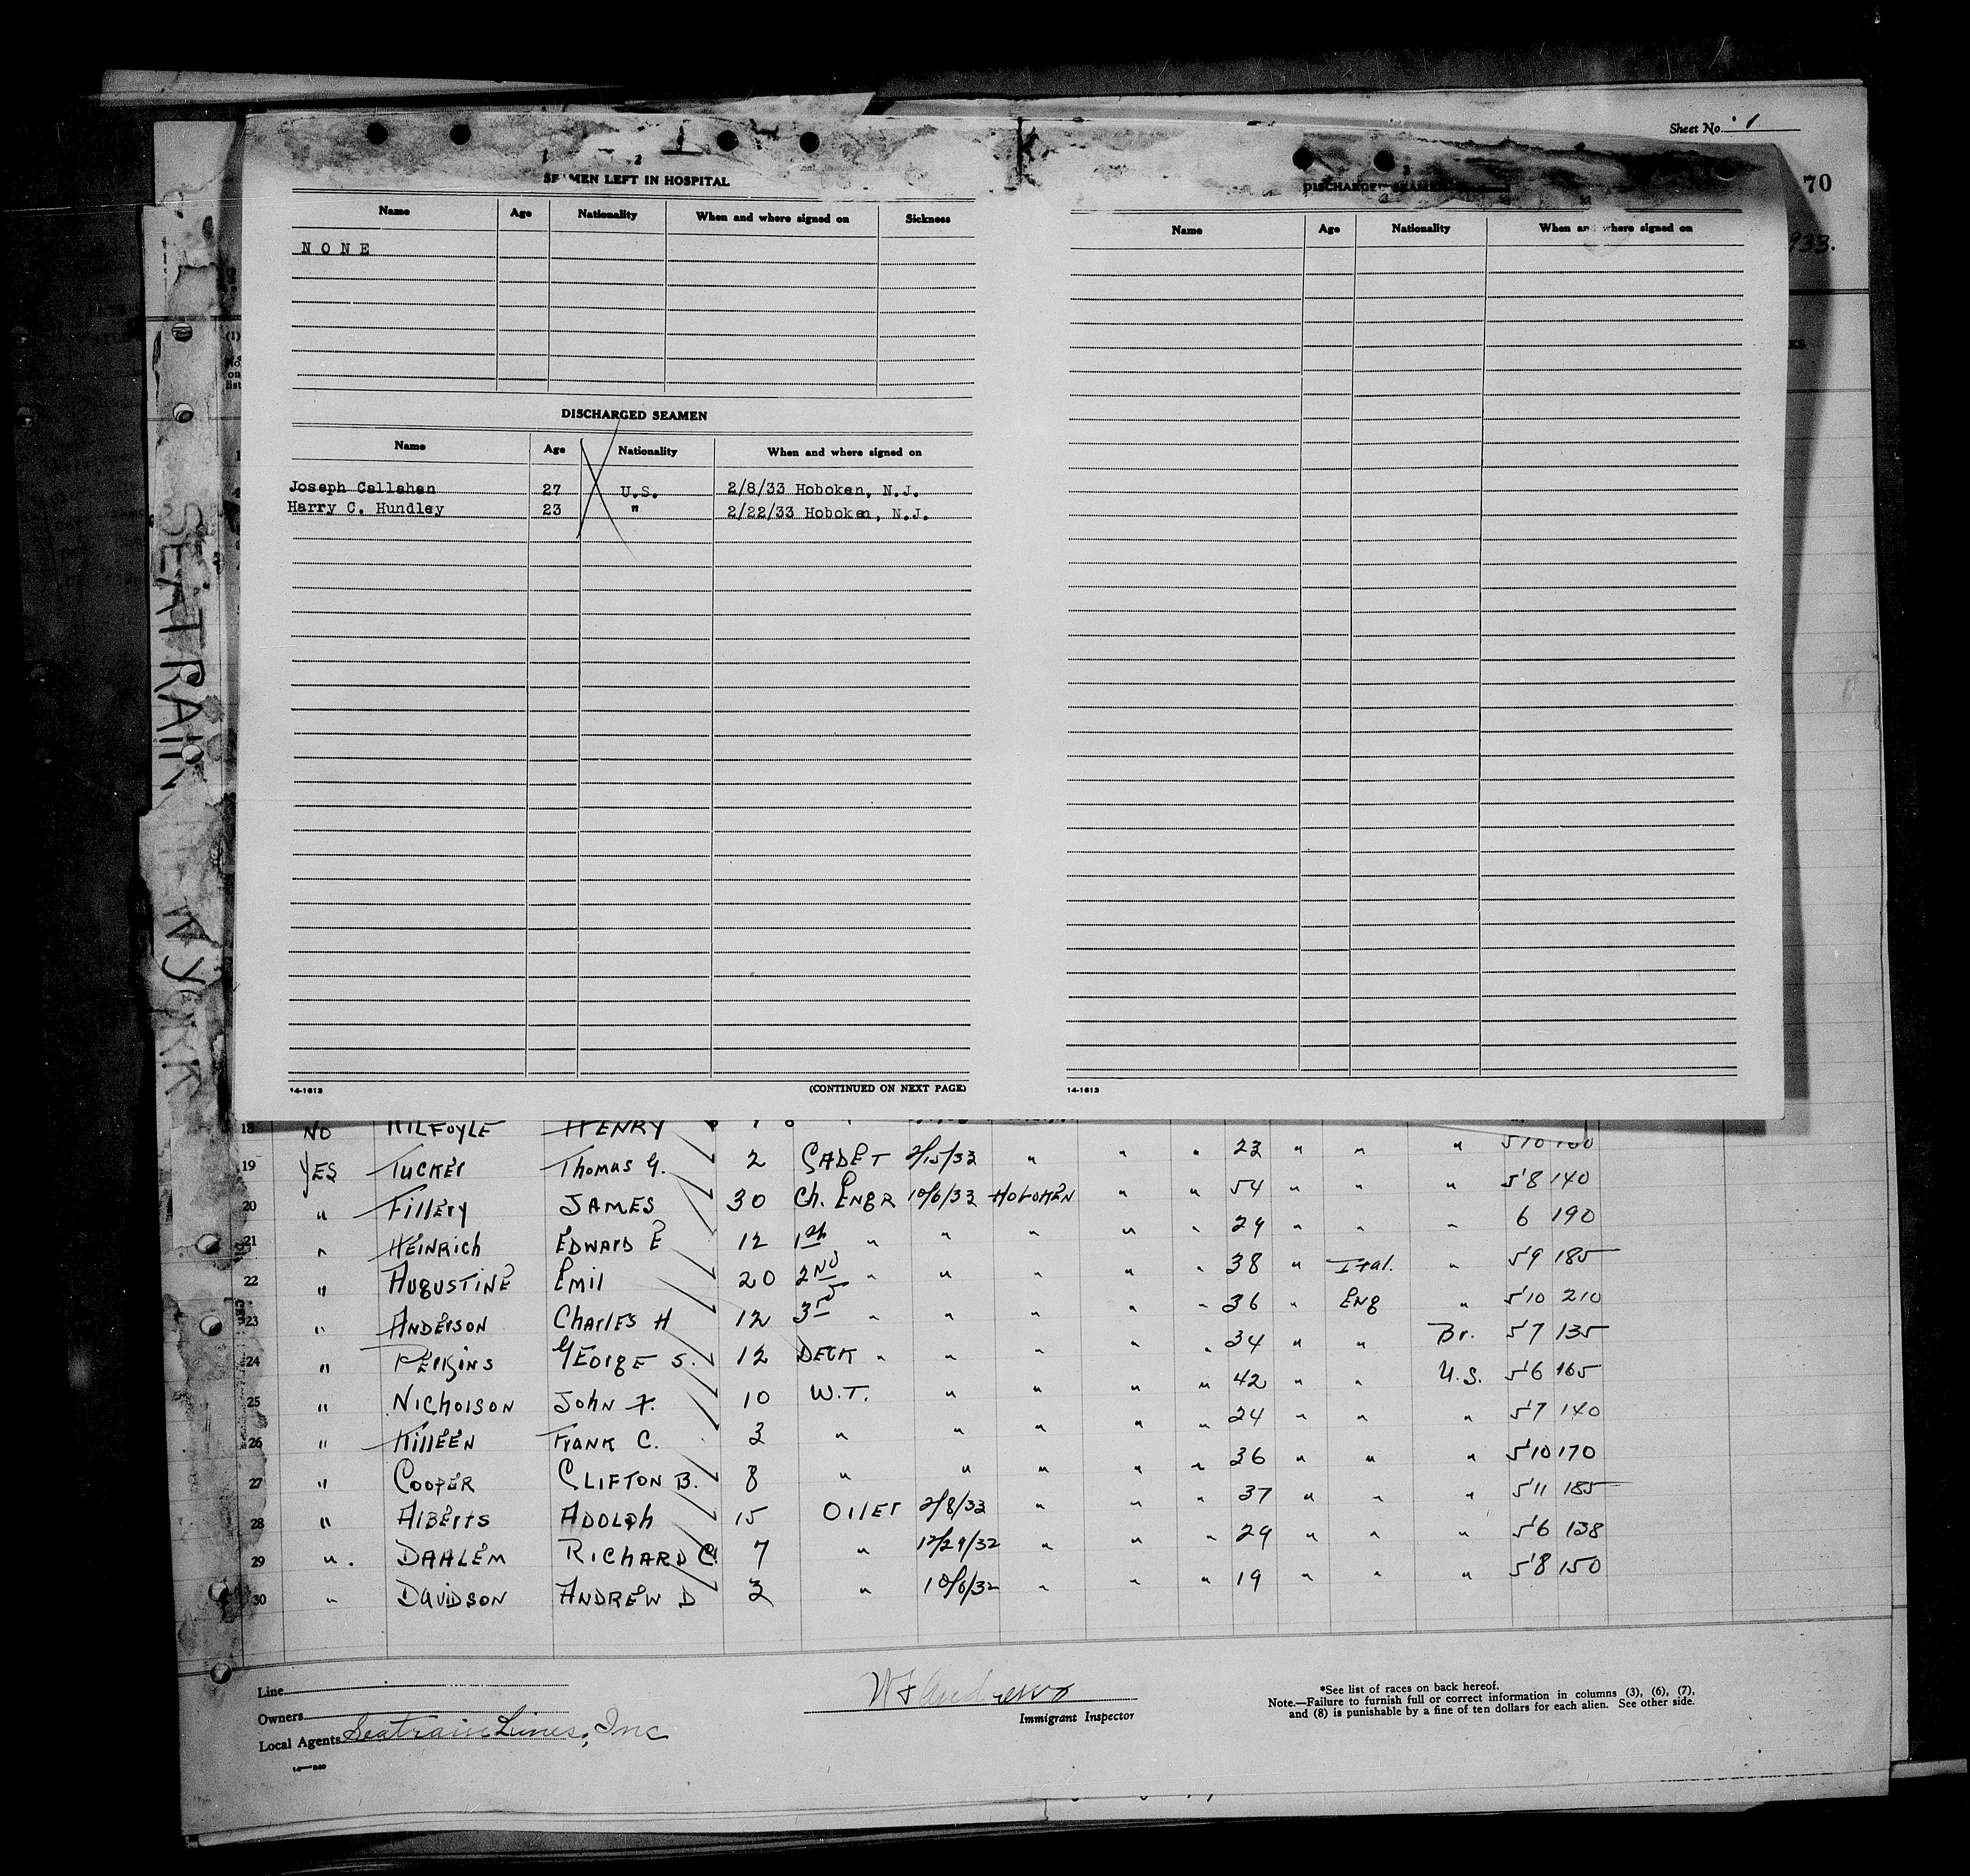 Sheet No. 1
70
933.
SEAMEN LEFT IN HOSPITAL
Name Age Nationality When and where signed on Sickness
NONE
DISCHARGED SEAMEN
Name Age Nationality When and where signed on
Joseph Callahan 27 U.S. 2/8/33 Hoboken, N.J.
Harry C. Hundley 23 " 2/22/33 Hoboken, N.J.
14-1613 (CONTINUED ON NEXT PAGE)
DISCHARGED SEAMEN
Name Age Nationality When and where signed on
14-1613
SEATRAIN
18 NO KILFOYLE HENRY
19 YES TUCKER THOMAS G. 2 CADET 2/15/33 " " " 23 " " " 5'10 160
20 " Fillery JAMES 30 Ch. ENGR 10/6/33 HOBOKEN " " 54 " " " 5'8 140
21 " HEINRICH EDWARD E 12 1st " " " " " 29 " " " 6 190
22 " AUGUSTINE EMIL 20 2ND " " " " " 38 " Ital. " 5'9 185
23 " ANDERSON CHARLES H 12 3rd " " " " " 36 " ENG " 5'10 210
24 " PERKINS GEORGE S. 12 DECK " " " " " 34 " " Br. 5'7 135
25 " NICHOLSON JOHN F. 10 W.T. " " " " 42 " " U.S. 5'6 165
26 " KILLEEN FRANK C. 3 " " " " " 24 " " " 5'7 140
27 " COOPER CLIFTON B. 8 " " " " " 36 " " " 5'10 170
28 " ALBERTS ADOLPH 15 OILER 2/8/33 " " " 37 " " " 5'11 185
29 " . DAALEM RICHARD C. 7 " 12/29/32 " " " 29 " " " 5'6 138
30 " DAVIDSON ANDREW D 3 " 10/6/32 " " " 19 " " " 5'8 150
Line
Owners
Local Agents Seatrain Lines, Inc
W F Andrews
Immigrant Inspector
*See list of races on back hereof.
Note.—Failure to furnish full or correct information in columns (3), (6), (7),
and (8) is punishable by a fine of ten dollars for each alien. See other side.